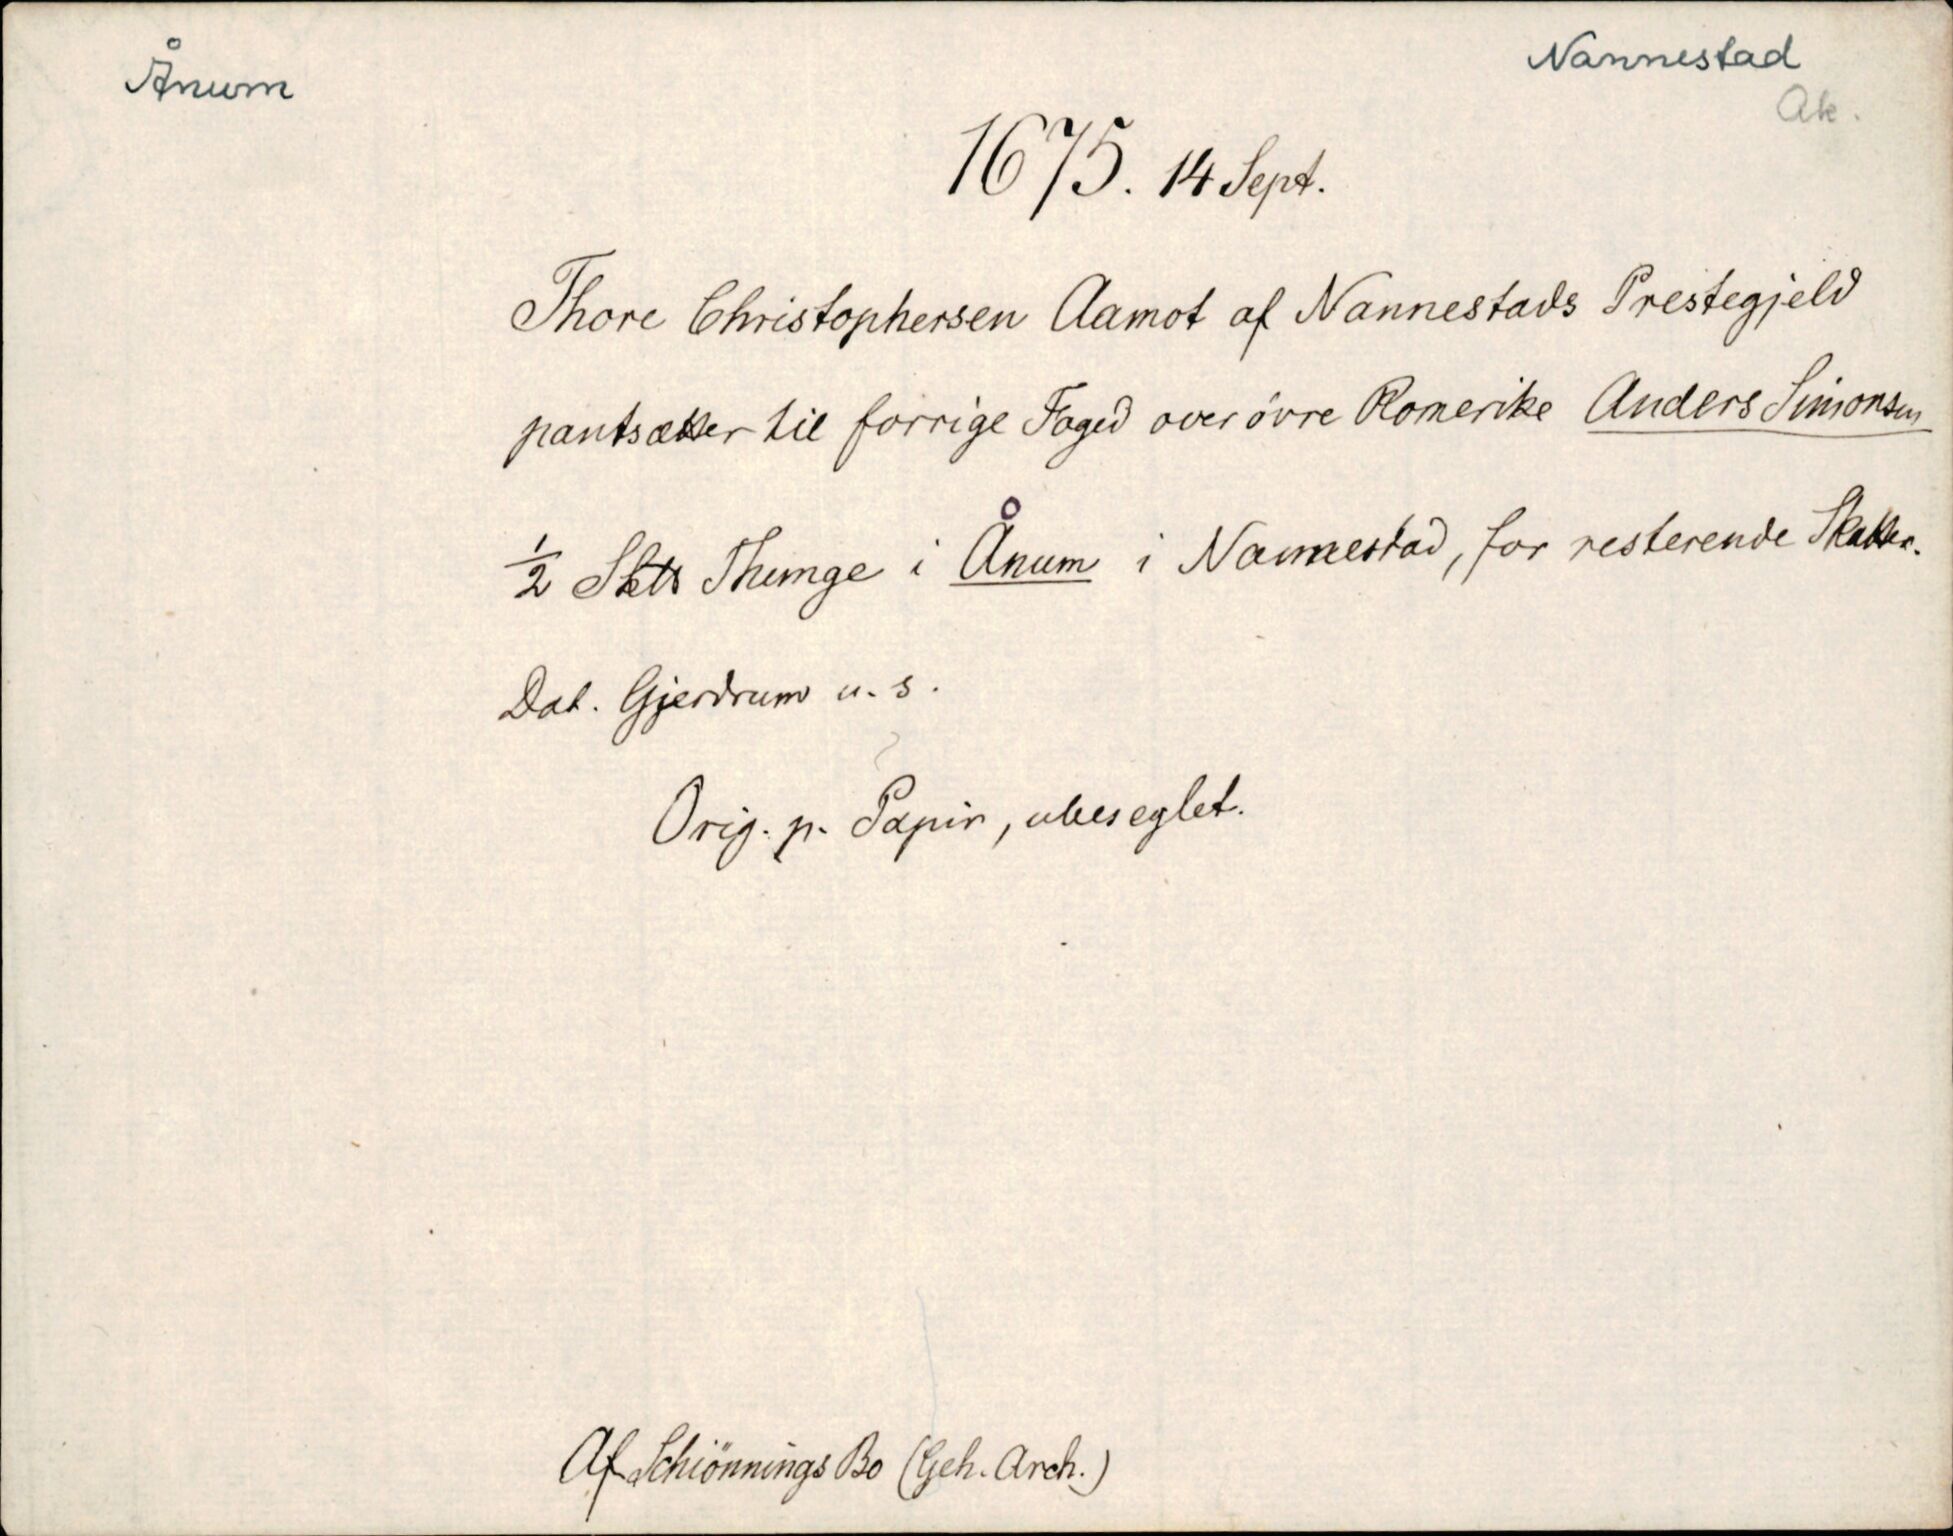 Ånum
Nannestad
Ak.
1675. 14 Sept.
Thore Christophersen Aamot af Nannestads Prestegjeld
pantsætter til forrige Foged over övre Romerike Anders Simonsen
½ Sktt Thunge i Ånum i Nannestad, for resterende Skatter.
Dat. Gjerdrum u. s.
Orig. p. Papir, ubeseglet.
Af Schiönnings Bo (Geh. Arch.)